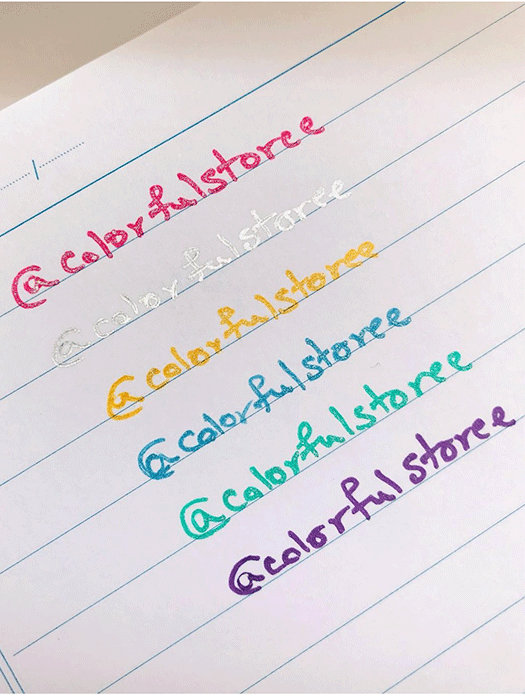 @colorfulstoree
@colorfulstoree
@colorfulstoree
@colorfulstoree
@colorfulstoree
@colorfulstoree